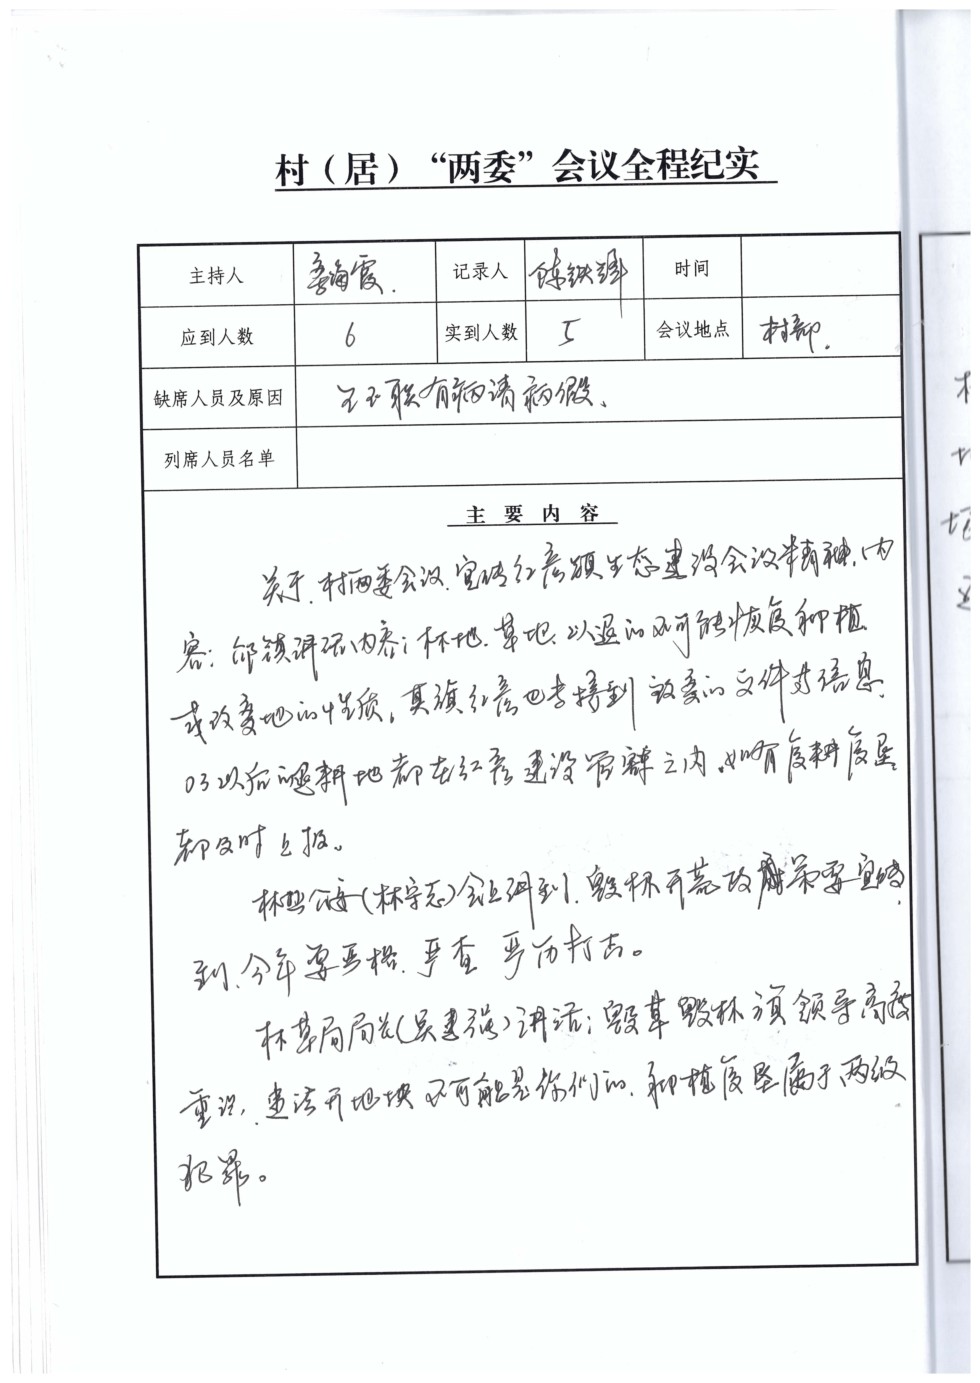 村（居）“两委”会议全程纪实
主持人 海霞. 记录人 陈铁锋 时间
应到人数 6 实到人数 5 会议地点 村部.
缺席人员及原因 王玉联有病请病假、
列席人员名单
主要内容
关于.村两委会议.宣传红彦镇生态建设会议精神.内
容：邰镇讲话内容；林地.草地.以退的不可能恢复种植
或改变地的性质，莫旗红彦也未接到 改变的文件与信息.
03以后 耕地都在红彦建设管辖之内.如有复耕复垦
都及时上报。
林业公安(林宇志)会上讲到.毁林开荒政策要宣传
到.今年要严格.严查 严厉打击。
林草局局长(吴建强)讲话；毁草毁林旗领导高度
重识.违法开地块不可能是你们的.种植复垦属于两级
犯罪。